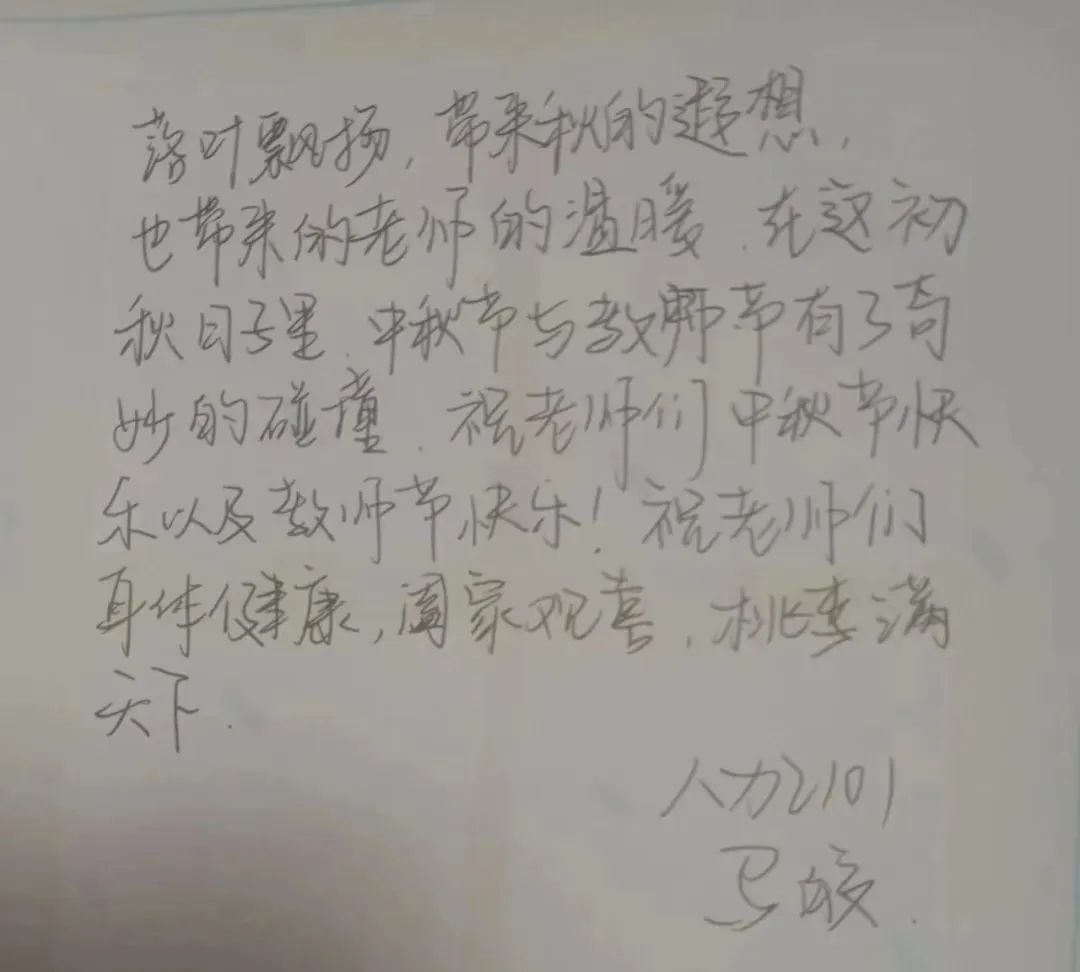 落叶飘扬，带来秋的遐想，
也带来的老师的温暖．在这初
秋日子里．中秋节与教师节有了奇
妙的碰撞．祝老师们中秋节快
乐以及教师节快乐！祝老师们
身体健康，阖家观喜，桃李满
天下．
人力2101
马皎．